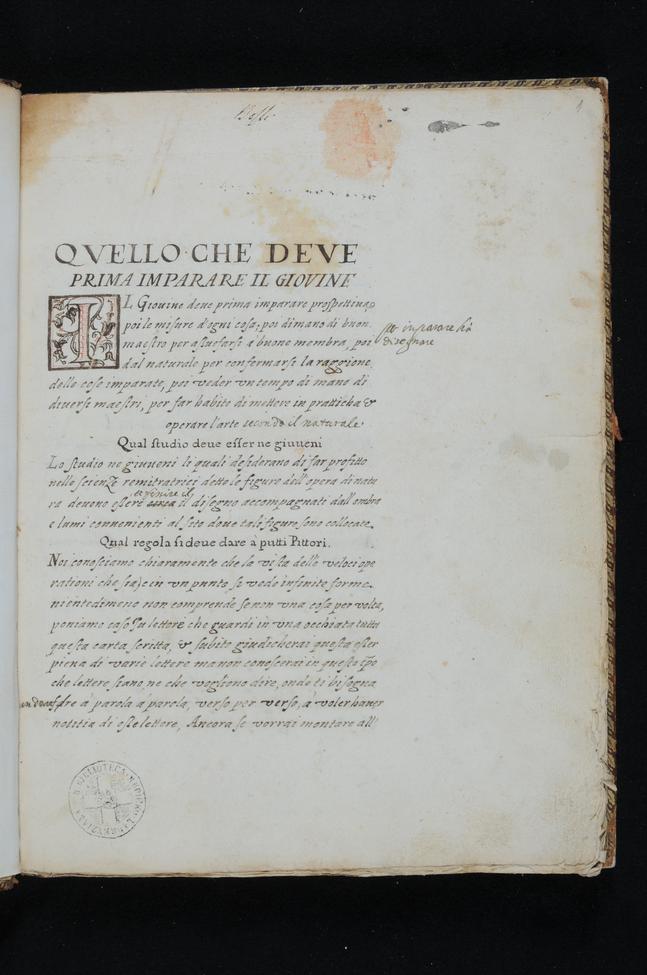 QVELLO·CHE DEVE
PRIMA IMPARARE IL GIOVINE
IL Giouine deue prima imparare prospettiua,
poi le misure d'ogni cosa, poi dimano di buon
maestro per assuefarsi a buone membra, poi
dal naturale per confermarsi la raggione
delle cose imparate, poi ueder un tempo di mano di
diuersi maestri, per far habito di mettere in pratticha &
operare l'arte secondo il naturale.
imparare
disegnare
Qual studio deue esser ne giuueni
Lo studio ne giuueni li quali desiderano di far profitto
nelle scienze remitratrici dette le figure dell'opera di natu
ra deueno essere il disegno accompagnati dall'ombra
e lumi conuenienti al sito doue tale figure sono collocate.
Qual regola si deue dare à putti Pittori.
Noi conosciamo chiaramente che la uista delle ueloci ope
rationi che sia, e in un punto si uede infinite forme,
nientedimeno non comprende se non una cosa per uolta,
poniamo caso Tu lettore che guardi in una occhiata tutta
questa carta scritta, & subito giudicherai questa esser
piena di uarie lettere ma non conoscerai in questo tp̃o
che lettere siano, ne che uogliono dire, onde ti bisogna
fare à parola à parola, uerso per uerso, à uoler hauer
notitia di esse lettere, Ancora se uorrai montare all'
BIBLIOTECA MEDICEO LAURENZIANA